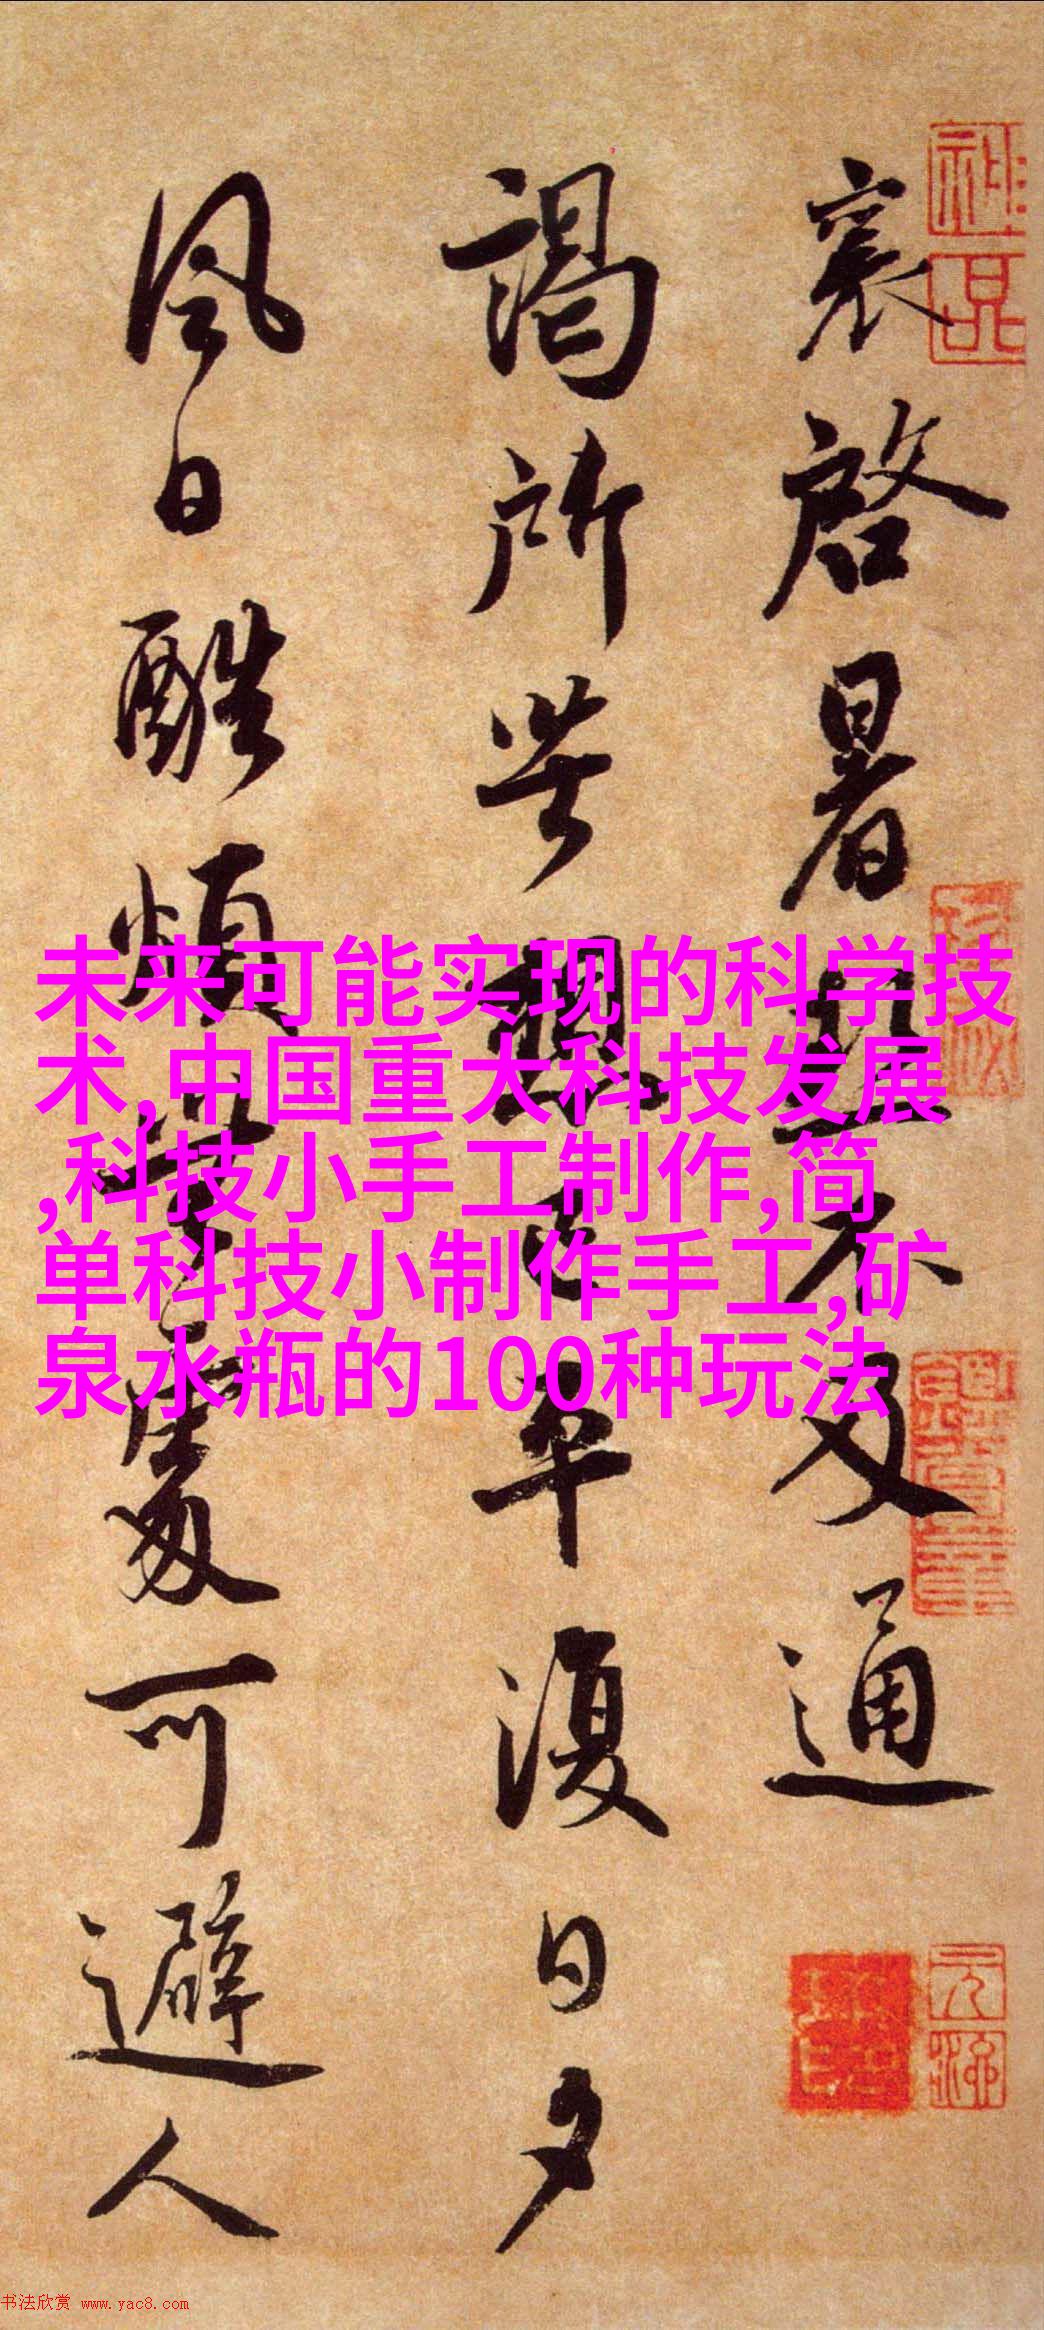 襄啓暑熱不及通
謁所苦想已平復日夕
風日酷煩無處可避人
未来可能实现的科学技
术,中国重大科技发展
,科技小手工制作,简
单科技小制作手工,矿
泉水瓶的100种玩法
书法欣赏 www.yac8.com